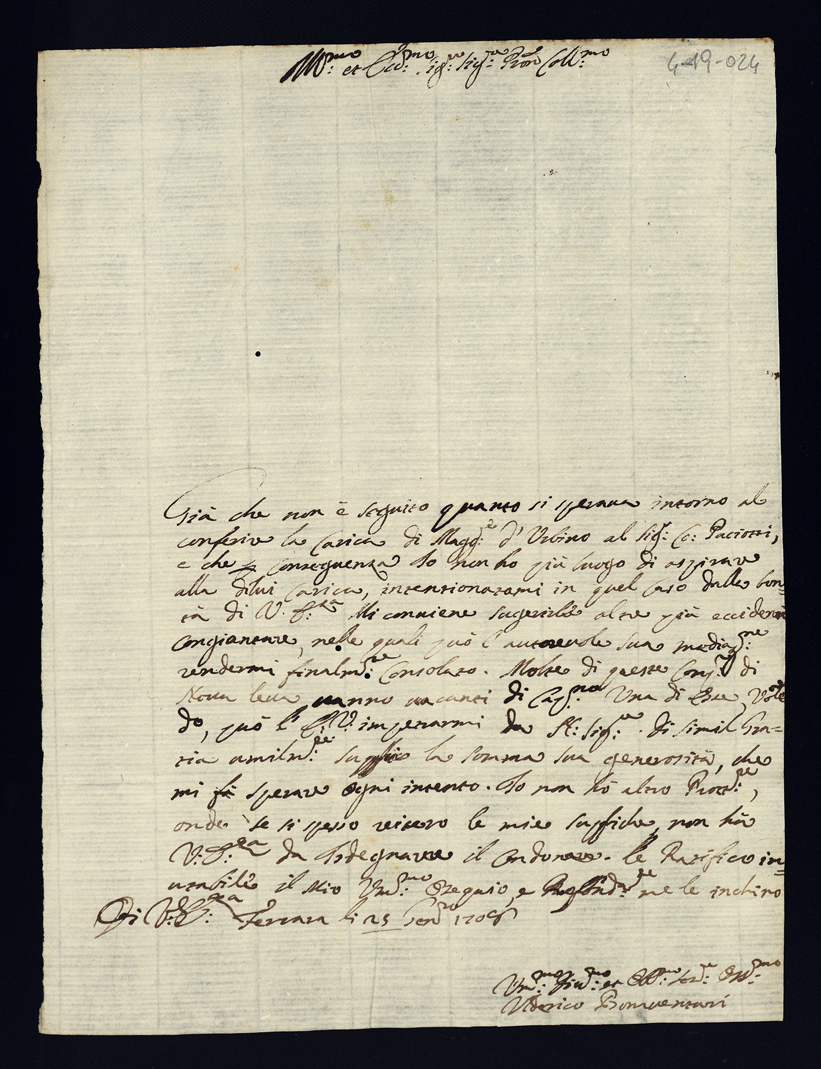 Ill:mo et Ecc:mo Sig:re Sig:re Pron Coll:mo
4-19-024
Già che non è seguito quanto si sperava intorno al
conferire la carica di Magg:re d'Urbino al Sig: Co: Paciotti,
e che p conseguenza Io non ho più luogo di aspirare
alla dilui carica, intenzionatami in quel caso dalla bon=
tà di V. E:za Mi conviene sugerirle altre più
congionture, nelle quali può l'autorevole sua mediaz:ne
rendermi finalm:te consolato. Molte di queste Comp: di
Nova leva vanno vacanti di Cap:no Una di Esse,
do, può l'E:V: impetrarmi da N: Sig:re. di simil Gra=
tia umilm:te supplico la somma sua generosità, che
mi fà sperare ogni intento. Io non hò altro Prott:re,
onde se si spesso reitero le mie suppliche, non hà
V:E:za da sdegnarsene il condonare. le Ratifico in=
variabile il Mio Um:mo ossequio, e Profond:te me le inchino
Di V:E:za Ferrara li 25 Gen:ro 1706
Um:mo Div:mo et Obl:mo Ser:re Oss:mo
Uderico Bonaventuri